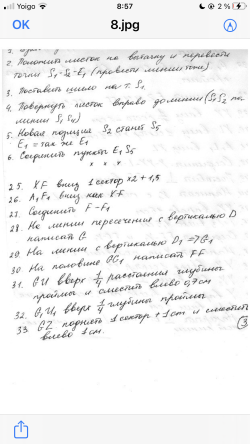 Yoigo
8:57
2 %
OK
8.jpg
2. Положить листок на вытачку и перевести
точки S₁-S₂-E₁ (провести линии тоне)
3. Поставить шило на т. S₁.
4. Повернуть листок вправо до линии (S₁S₂ на
линии S₁S₄)
5. Новая позиция S₂ станет S₅
E₁ = так же E₁
6. Соединить пункты E₁S₅
x x x
25. XF вниз 1 сектор x2 + 1,5
26. A₁F₁ вниз как XF
27. Соединить F-F₁
28. На линии пересечения с вертикалью D
написать G
29. На линии с вертикалью D₁ = G₁
30 На половине GG₁ написать FF
31. GU вверх 1/4 расстояния глубины
проймы и сместить влево 0,7 см
32. G₁U₁ вверх 1/4 глубины проймы
33. GZ поднять 1 сектор + 1 cm и сместить
влево 1 cm.
(3